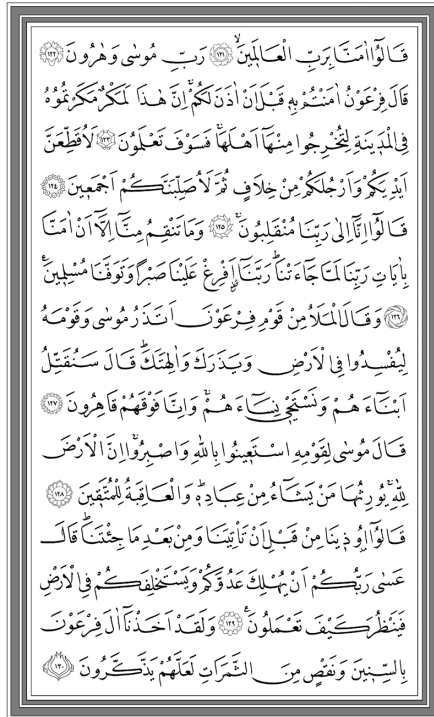 قَالُٓوا اٰمَنَّا بِرَبِّ الْعَالَمٖينَۙ ﴿١٢١﴾ رَبِّ مُوسٰى وَهٰرُونَ ﴿١٢٢﴾
قَالَ فِرْعَوْنُ اٰمَنْتُمْ بِهٖ قَبْلَ اَنْ اٰذَنَ لَكُمْۚ اِنَّ هٰذَا لَمَكْرٌ مَكَرْتُمُوهُ
فِي الْمَدٖينَةِ لِتُخْرِجُوا مِنْهَٓا اَهْلَهَاۚ فَسَوْفَ تَعْلَمُونَ ﴿١٢٣﴾ لَاُقَطِّعَنَّ
اَيْدِيَكُمْ وَاَرْجُلَكُمْ مِنْ خِلَافٍ ثُمَّ لَاُصَلِّبَنَّكُمْ اَجْمَعٖينَ ﴿١٢٤﴾
قَالُٓوا اِنَّٓا اِلٰى رَبِّنَا مُنْقَلِبُونَۚ ﴿١٢٥﴾ وَمَا تَنْقِمُ مِنَّٓا اِلَّٓا اَنْ اٰمَنَّا
بِاٰيَاتِ رَبِّنَا لَمَّا جَٓاءَتْنَاۜ رَبَّنَٓا اَفْرِغْ عَلَيْنَا صَبْرًا وَتَوَفَّنَا مُسْلِمٖينَۚ
﴿١٢٦﴾ وَقَالَ الْمَلَاُ مِنْ قَوْمِ فِرْعَوْنَ اَتَذَرُ مُوسٰى وَقَوْمَهُ
لِيُفْسِدُوا فِي الْاَرْضِ وَيَذَرَكَ وَاٰلِهَتَكَۜ قَالَ سَنُقَتِّلُ
اَبْنَٓاءَهُمْ وَنَسْتَحْيٖ نِسَٓاءَهُمْۚ وَاِنَّا فَوْقَهُمْ قَاهِرُونَ ﴿١٢٧﴾
قَالَ مُوسٰى لِقَوْمِهِ اسْتَعٖينُوا بِاللّٰهِ وَاصْبِرُواۚ اِنَّ الْاَرْضَ
لِلّٰهِۚ يُورِثُهَا مَنْ يَشَٓاءُ مِنْ عِبَادِهٖۜ وَالْعَاقِبَةُ لِلْمُتَّقٖينَ ﴿١٢٨﴾
قَالُٓوا اُو۫ذٖينَا مِنْ قَبْلِ اَنْ تَأْتِيَنَا وَمِنْ بَعْدِ مَا جِئْتَنَاۜ قَالَ
عَسٰى رَبُّكُمْ اَنْ يُهْلِكَ عَدُوَّكُمْ وَيَسْتَخْلِفَكُمْ فِي الْاَرْضِ
فَيَنْظُرَ كَيْفَ تَعْمَلُونَۚ ﴿١٢٩﴾ وَلَقَدْ اَخَذْنَٓا اٰلَ فِرْعَوْنَ
بِالسِّنٖينَ وَنَقْصٍ مِنَ الثَّمَرَاتِ لَعَلَّهُمْ يَذَّكَّرُونَ ﴿١٣٠﴾